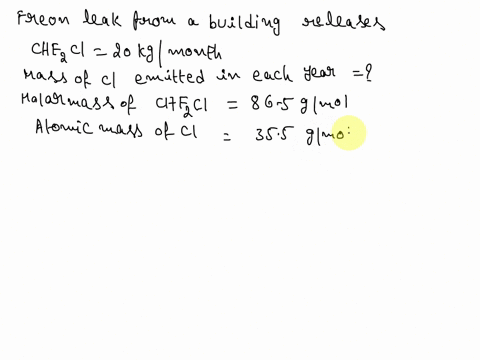 Freon leak from a building releases
CHF₂Cl = 20 kg/month
Mass of Cl emitted in each year = ?
Molar mass of CHF₂Cl = 86.5 g/mol
Atomic mass of Cl = 35.5 g/mo